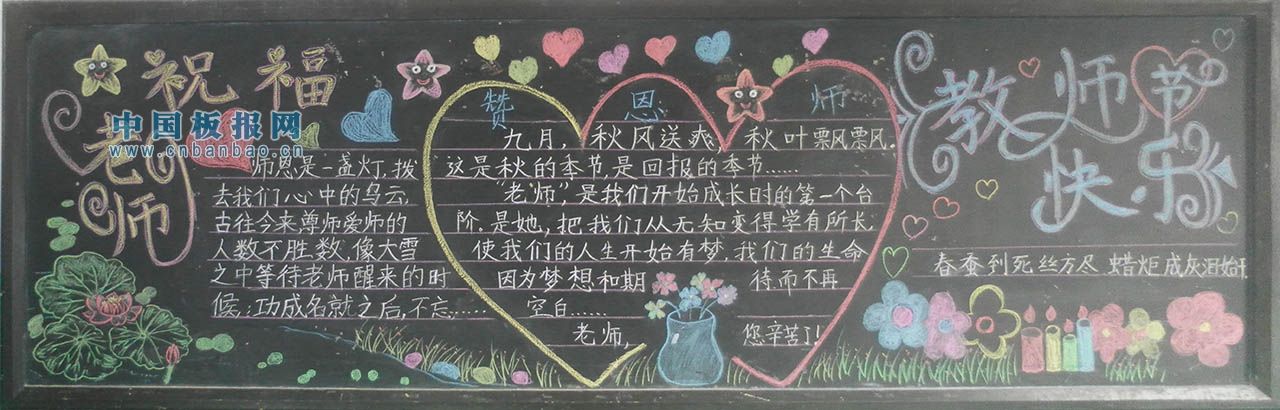 祝福
老师
中国板报网
www.cnbanbao.cn
师恩是一盏灯,拨
去我们心中的乌云,
古往今来尊师爱师的
人数不胜数,像大雪
之中等待老师醒来的时
候;功成名就之后,不忘……
赞恩师
九月,秋风送爽,秋叶飘飘.
这是秋的季节,是回报的季节……
“老师”,是我们开始成长时的第一个台
阶.是她,把我们从无知变得学有所长.
使我们的人生开始有梦.我们的生命
因为梦想和期待而不再
空白……
老师,您辛苦了!
教师节
快乐
春蚕到死丝方尽 蜡炬成灰泪始干